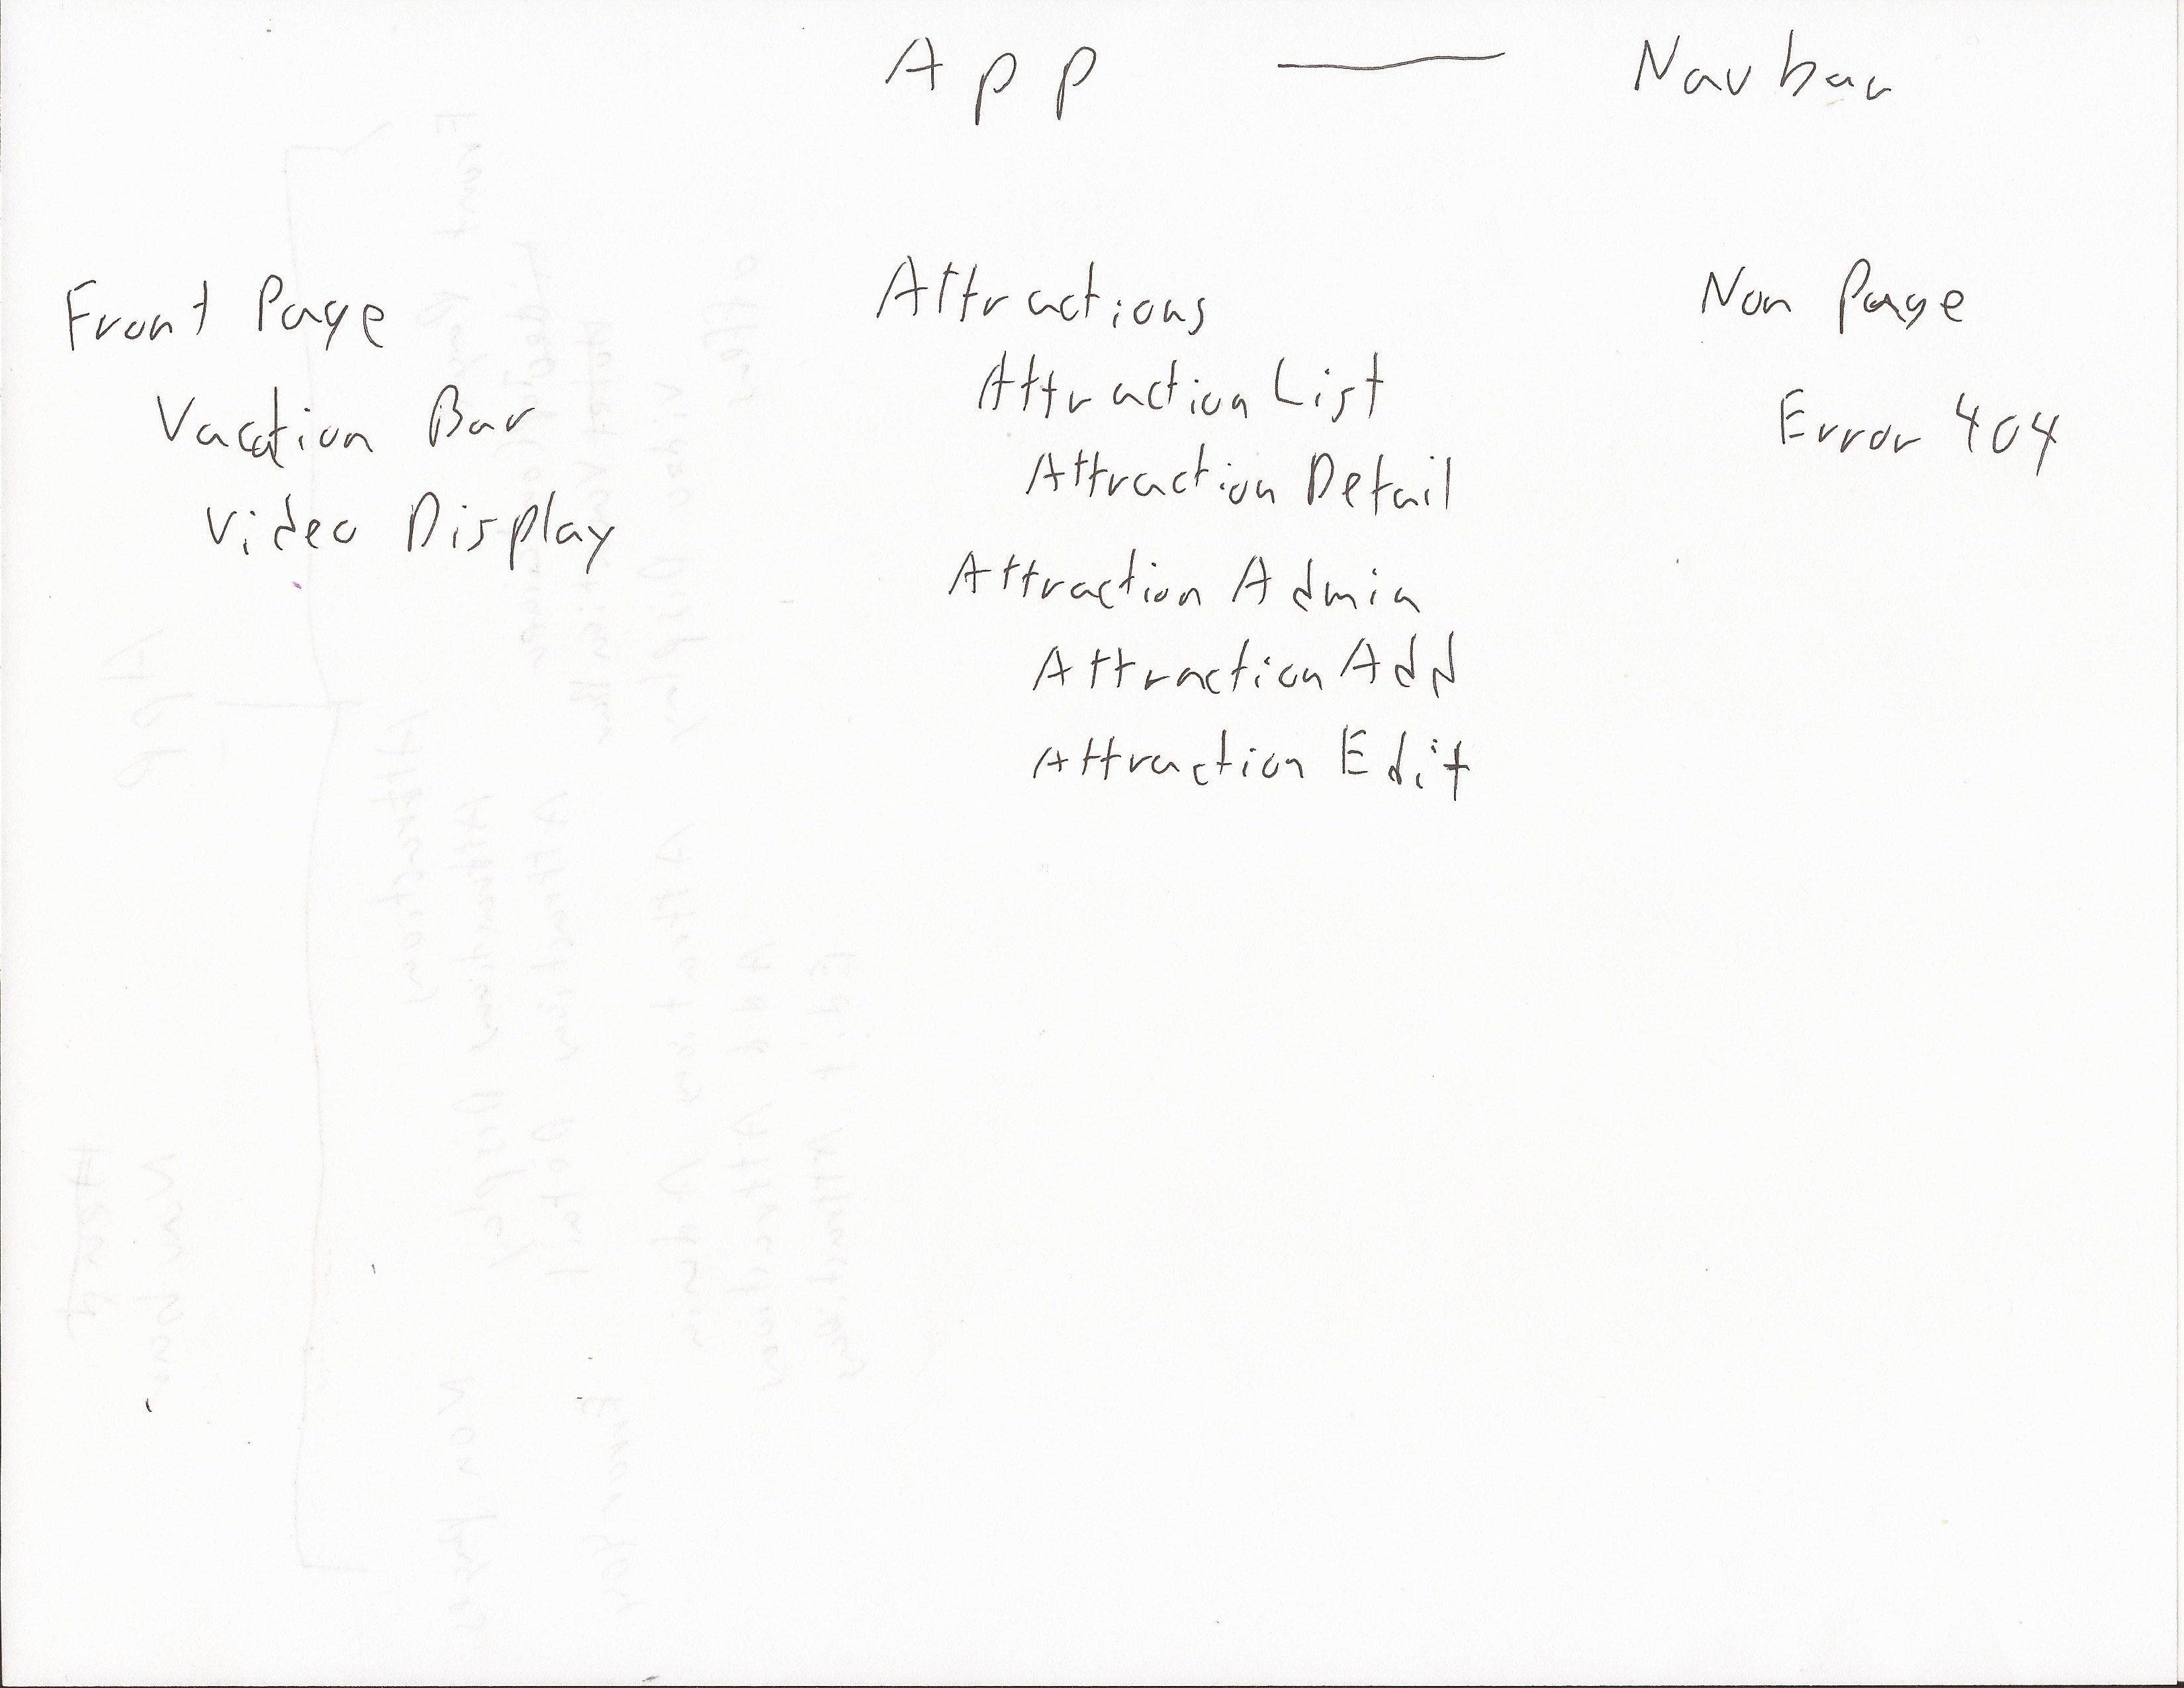 App — Navbar
Front Page
Vacation Bar
Video Display
Attractions
Attraction List
Attraction Detail
Attraction Admin
Attraction Add
Attraction Edit
Non Page
Error 404